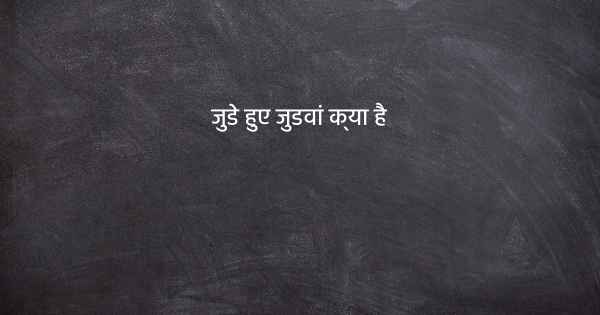 जुडे हुए जुडवां क्या है